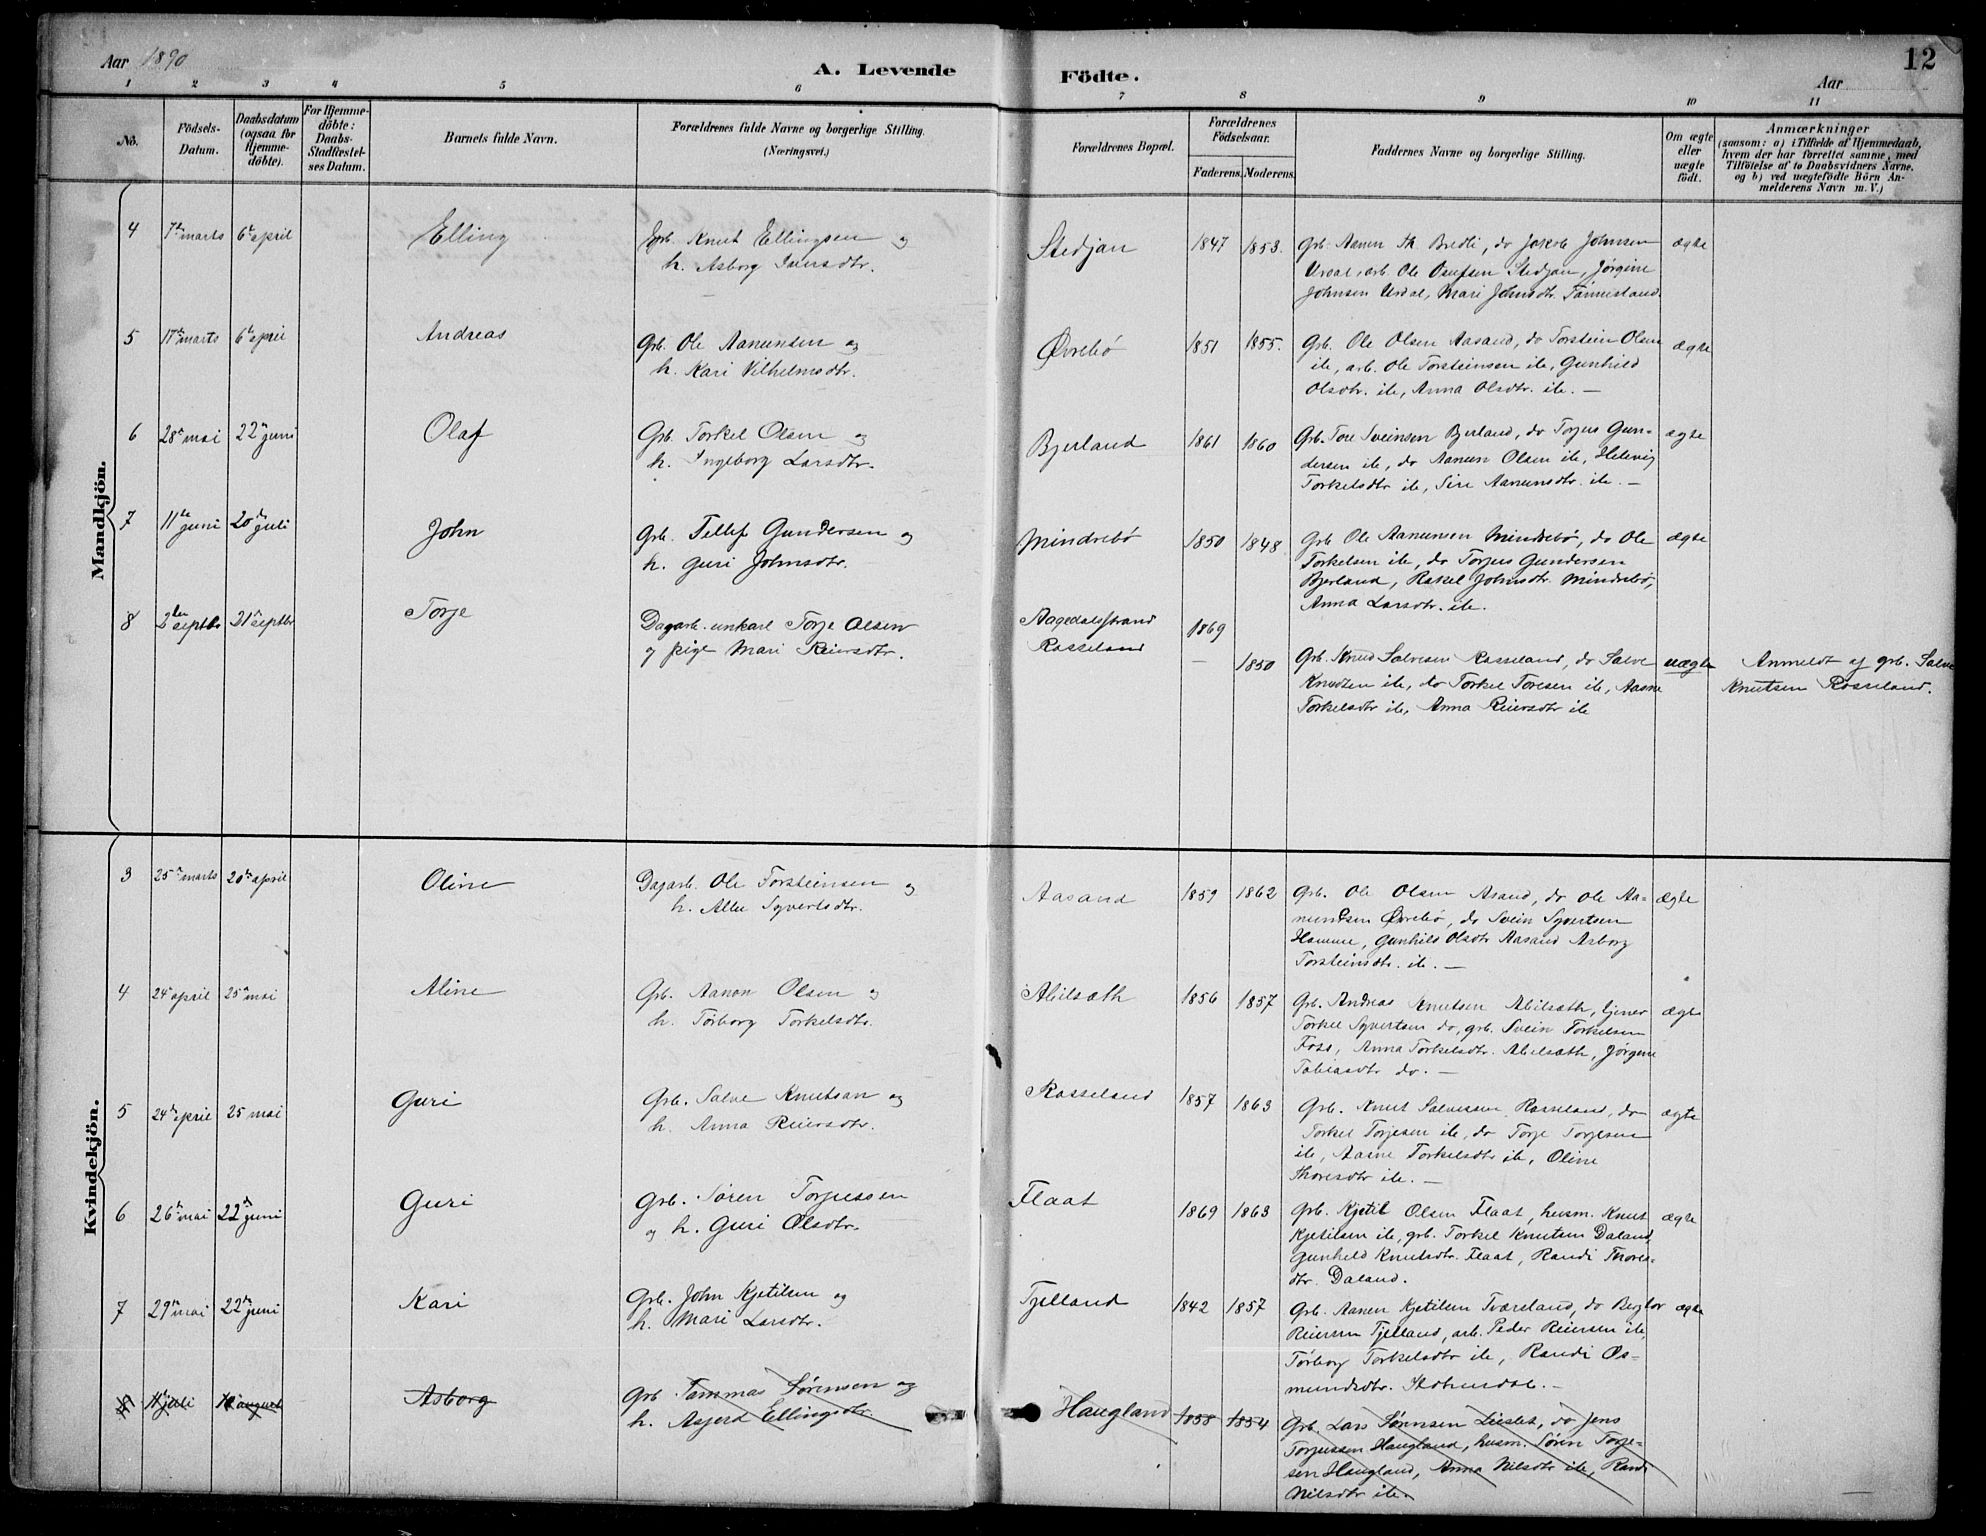 Aar 1890
A. Levende Födte.
Aar
12
1 2 3 4 5 6 7 8 9 10 11
No.
Födsels-Datum.
Daabsdatum (ogsaa for Hjemme-döbte).
For Hjemme-döbte: Daabs-Stadfæstel-ses Datum.
Barnets fulde Navn.
Forældrenes fulde Navne og borgerlige Stilling. (Næringsvei.)
Forældrenes Bopæl.
Forældrenes Födselsaar.
Faderens. Moderens.
Faddernes Navne og borgerlige Stilling.
Om ægte eller uægte födt.
Anmærkninger
(saasom: a) i Tilfælde af Hjemmedaab,
hvem der har forrettet samme, med
Tilföielse af to Daabsvidners Navne.
og b) ved uægtefödte Börn An-
melderens Navn m. V.)
Mandkjön.
4 7de marts 6te april Elling Grb. Knut Ellingsen og
h. Asborg Iversdtr.
Stedjan 1847 1853. Grb. Aanen Th. Bredli, do Jakob Johnsen ægte
Urdal, arb. Ole Osufsen Stedjan, Jørgine
Johnsen Urdal, Mari Johnsdtr.
5 17de marts 6te april Andreas Grb. Ole Aanunsen og
h. Kari Vilhelmsdtr.
Øvrebö 1851 1855. Grb. Ole Olsen Aasand, do Torstein Olsen ægte
ile, arb. Ole Torsteinsen ile, Gunhild
Olsdtr. ile, Anna Olsdtr. ile. —
6 28de mai 22de juni Olaf Grb. Torkel Olsen og
h. Ingeborg Larsdtr.
Bjerland 1861 1860 Grb. Tore Sveinsen Bjerland, do Torjus Gun- ægte
dersen ile, do Aanen Olsen ile, Helevig
Torkelsdtr ile, Siri Aanunsdtr. ile. —
7 11te juni 20de juli John Grb. Tellef Gundersen og
h. Guri Johnsdtr.
Mindrebö 1850 1848 Grb Ole Aanunsen Mindrebö, do Ole ægte
Torkelsen ile, do Torjus Gundersen
Bjerland, Rakel Johnsdtr. Mindrebö,
Anna Larsdtr. ile.
8 2den septbr 21de septbr Torje Dagarb. unkarl Torje Olsen
og pige Mari Reiersdtr.
Aagedalsstrand 1869
Rosseland — 1850 Grb. Knud Salvesen Rosseland, do Salve uægte Anmeldt af grb. Salve
Knudzen ile, do Torkel Toresen ile, Aasne Knutsen Rosseland.
Torkelsdtr ile, Anna Reiersdtr ile
Kvindekjön.
3 25de marts 20de april Oline Dagarb. Ole Torsteinsen og
h. Syvertsdtr.
Aasand 1859 1862 Grb. Ole Olsen Asand, do Ole Aa- ægte
nundsen Øvrebö, do Svein Syvertsen
Gunhild Olsdtr Aasand Asborg
Torsteinsdtr. ile. —
4 24de april 25de mai Aline Grb. Aanon Olsen og
h. Torborg Torkelsdtr.
Abilsæth 1856 1857 Grb. Andreas Knutsen Abilsæth, tjener ægte
Torkel Syvertsen do, grb. Svein Torkelsen
Foss, Anna Torkelsdtr. Abilsæth, Jørgine
Tobiasdtr do. —
5 24de april 25 mai Guri Grb. Salve Knutsen og
h. Anna Reiersdtr.
Rosseland 1857 1863 Grb. Knut Salvessen Rosseland, do ægte
Torkel Torjesen ile, do Torje Torjesen
ile, Aasne Torkelsdtr ile, Oline
Thoresdtr ile. —
6 26de mai 22de juni Guri Grb. Søren Torjussen
og h. Guri Olsdtr.
Flaat 1869 1863 Grb. Kjetil Olsen Flaat, husm. Knut ægte
Kjetilsen ile, grb. Torkel Knutsen Daland
Gunhild Knutsdtr. Flaat, Randi Thores-
dtr. Daland.
7 29de mai 22de juni Kari Grb. John Kjetilsen og
h. Mari Larsdtr.
Tjelland 1842 1857 Grb. Aanen Kjetilsen Tveresland, do Berglov ægte
Reiersen Tjelland, arb. Peder Reiersen ile,
Torborg Torkelsdtr ile, Randi Os-
mundsdtr.
8 11te juli august Asborg Grb Tammas Sørensen og
h. Asjerd Ellingsdtr.
Haugland 1858 1854 Grb. Lars Sørensen Lieslet, do Jens
Torjussen Haugland, husm. Søren Torje-
sen Haugland, Anna Nilsdtr ile, Randi
Nilsdtr ile.